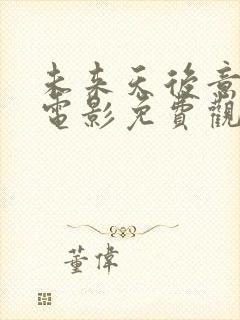 未来天後意
電影免費觀
董偉